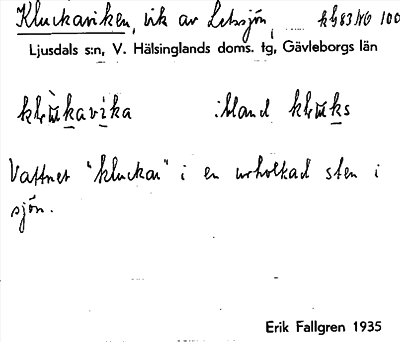 Kluckaviken, vik av Letssjön, kbl 83 NO 100
Ljusdals s:n, V. Hälsinglands doms. tg, Gävleborgs län
ibland
Vattnet "kluckar" i en urholkad sten i
sjön.
Erik Fallgren 1935